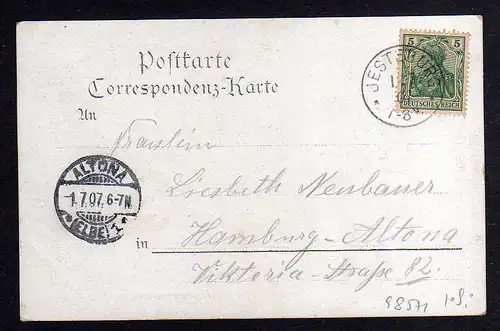 Postkarte
Correspondenz-Karte
5 5
DEUTSCHES REICH
JESTEBURG
7-8
An
Fräulein
Liesbeth Neubauer
ALTONA
-1.7.07. 6-7N.
(ELBE) 1
in Hamburg-Altona
Viktoria-Straße 82.